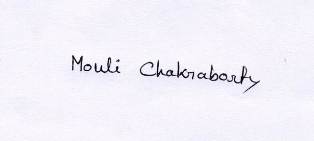 Mouli Chakraborty